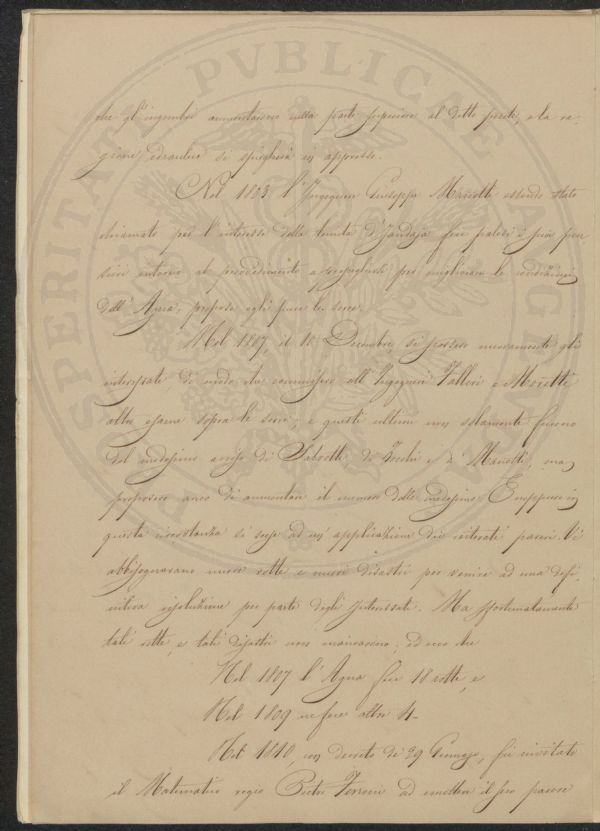 che gl'ingombri aumentavano nella parte superiore al detto ponte, e la ra-
gione idraulica si spiegherà in appresso.
Nel 1803 l'Ingegnere Giuseppe Manetti essendo stato
chiamato per l'interesse della tenuta d' fece palesi i suoi pen
sieri intorno al provvedimento a per migliorare le condizioni
dell' Agna, propose egli pure le serre.
Nel 1807, il 10 Decembre, si possero nuovamente gli
interessati di modo che commissero all'Ingegneri Valleri e Moretti
altro esame sopra le serre; e questi ultimi non solamente furono
del medesimo avviso di Salvetti, di e di Manetti, ma
proposero anco di aumentare il numero delle medesime. E neppure in
questa circostanza si scese ad un' applicazione dei reiterati pareri. Vi
abbisognavano nuove rotte e nuovi disastri per venire ad una defi
nitiva risoluzione per parte degli Interessati. Ma sfortunatamente
tali rotte, e tali disastri non mancarono; ed ecco che
Nel 1807 l'Agna fece 18 rotte, e
Nel 1809 ne fece altre 4.
Nel 1810, con decreto de' 29 Gennajo, fu invitato
il Matematico regio Pietro Ferroni ad emettere il suo parere
PROSPERITATE PVBLICAE